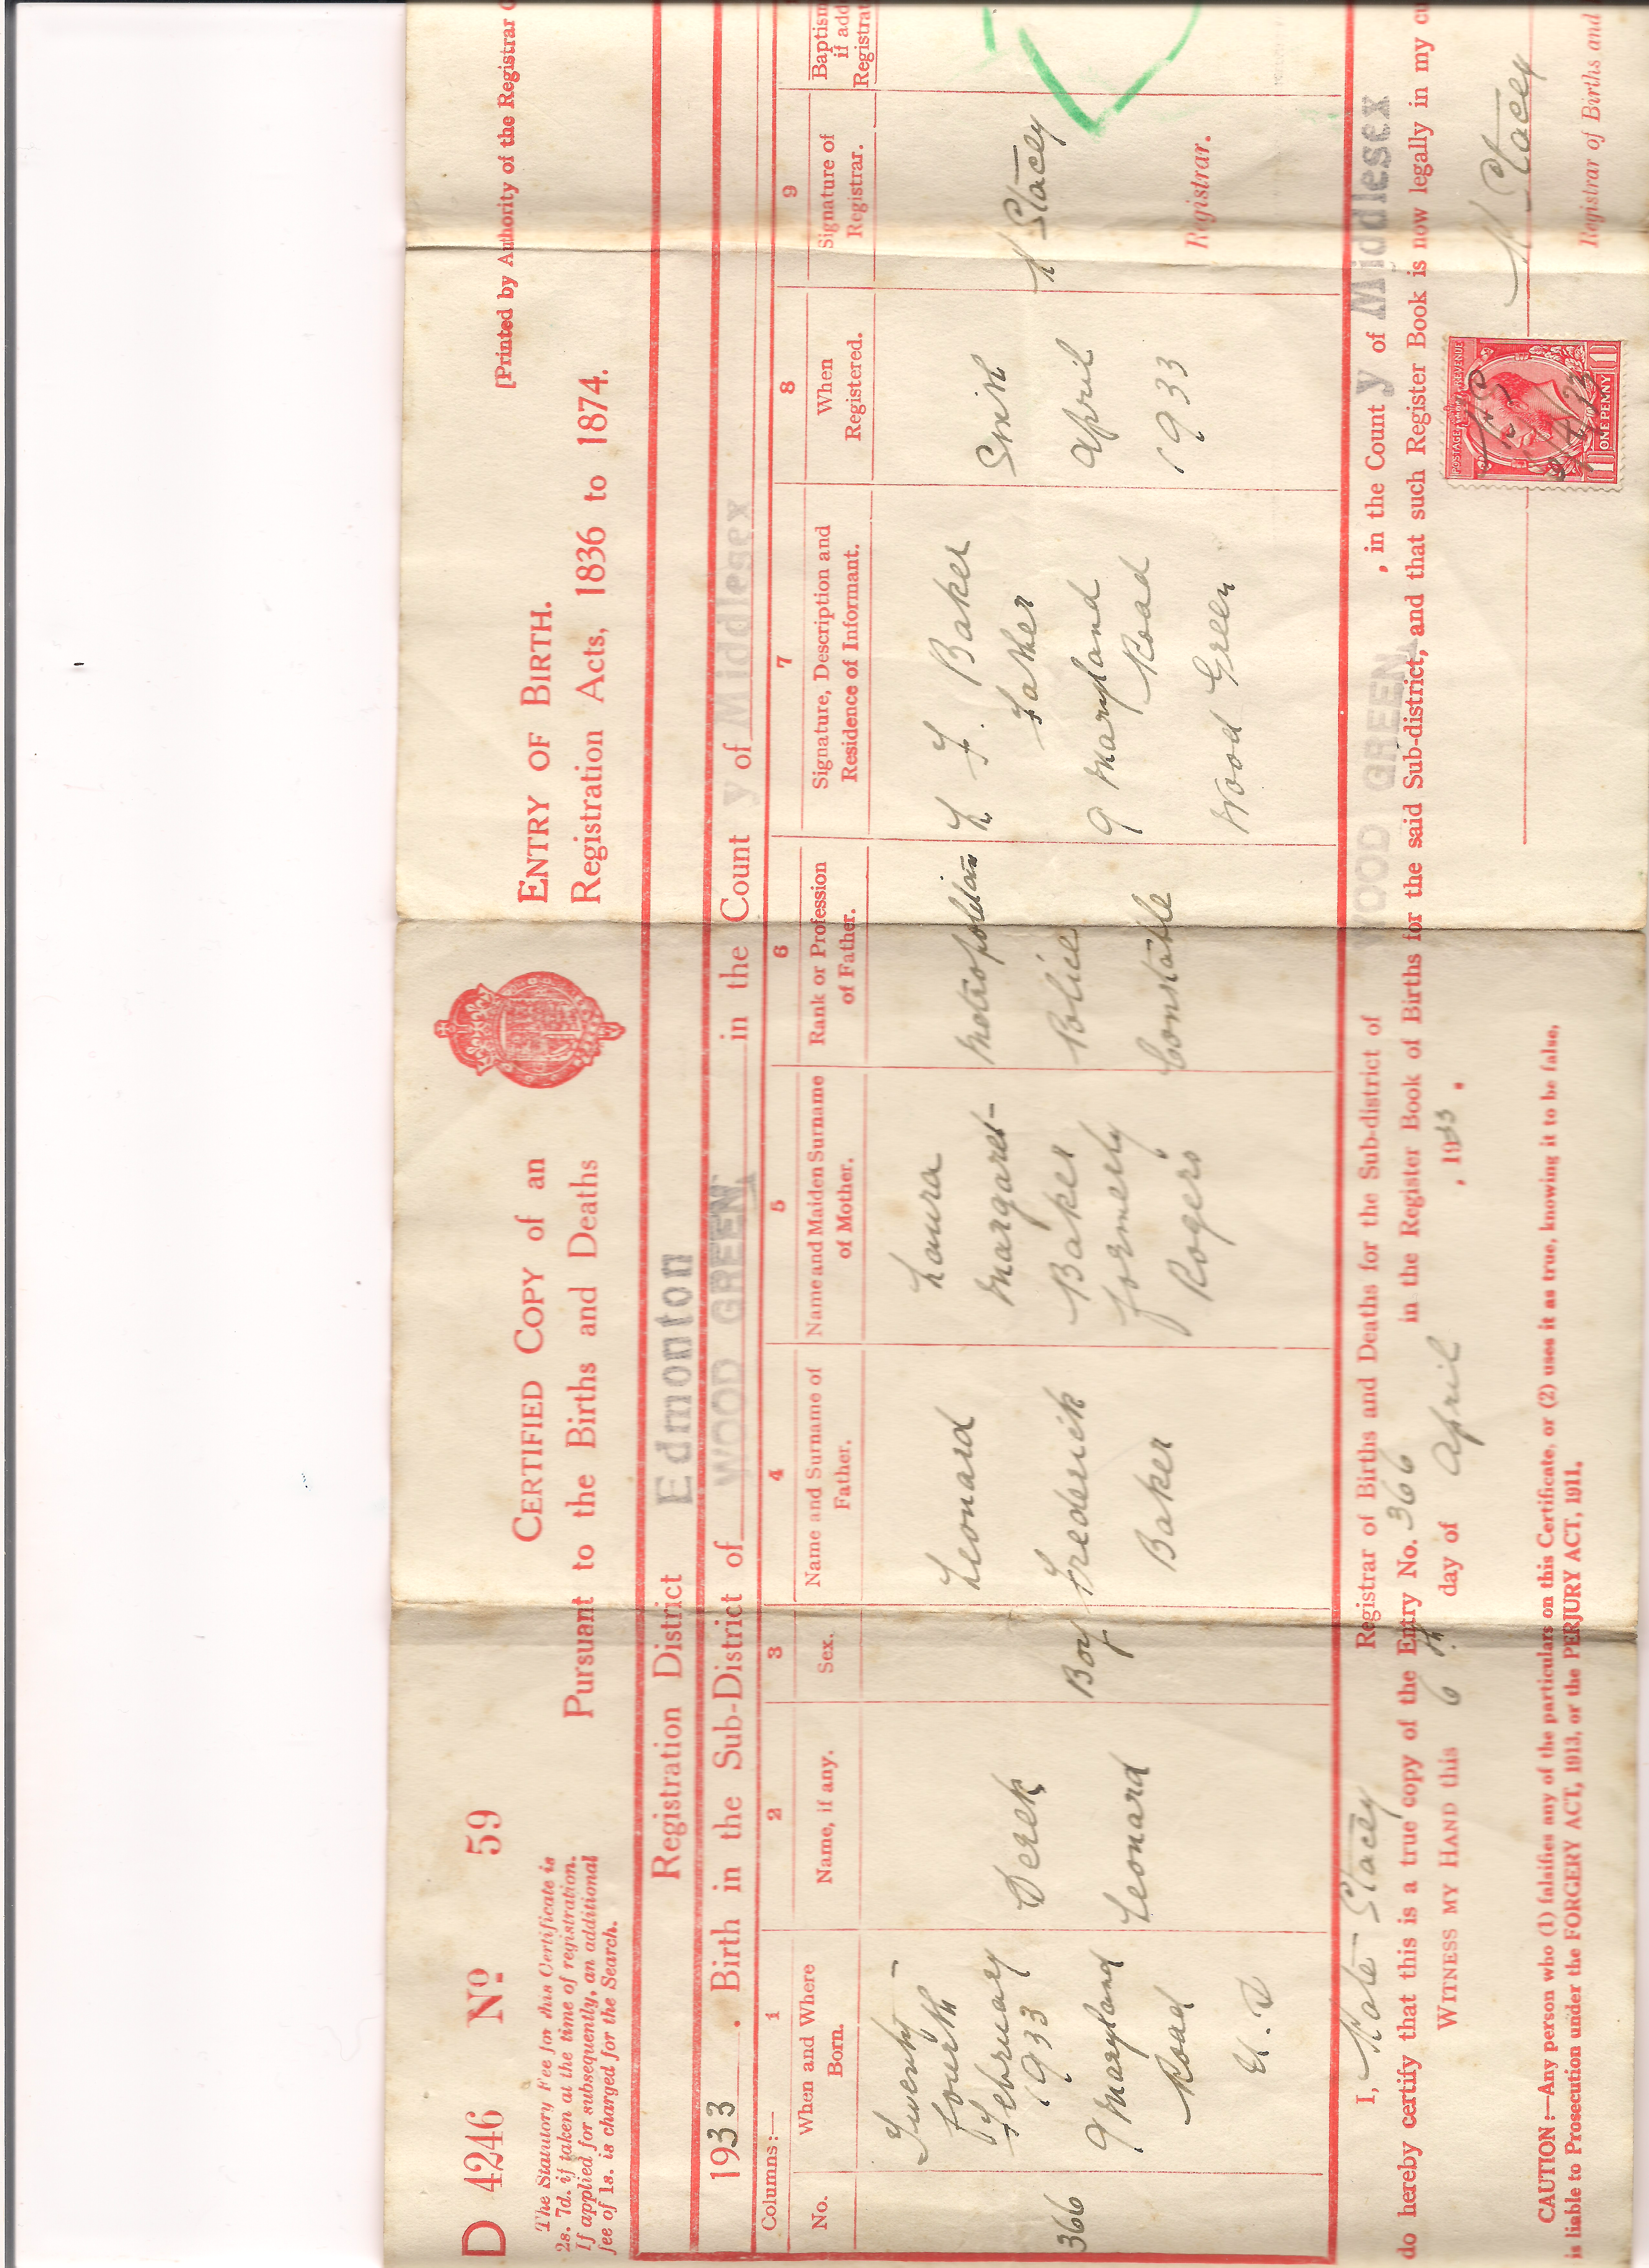 D 4246 No 59
[Printed by Authority of the Registrar
The Statutory Fee for this Certificate is
2s. 7d. if taken at the time of registration.
If applied for subsequently, an additional
fee of 1s. is charged for the Search.
CERTIFIED COPY of an ENTRY OF BIRTH.
Pursuant to the Births and Deaths Registration Acts, 1836 to 1874.
Registration District Edmonton
1933 . Birth in the Sub-District of WOOD GREEN in the County of Middlesex
Columns:— 1 2 3 4 5 6 7 8 9
No.
When and Where
Born.
Name, if any.
Sex.
Name and Surname of
Father.
Name and Maiden Surname
of Mother.
Rank or Profession
of Father.
Signature, Description and
Residence of Informant.
When
Registered.
Signature of
Registrar.
Baptism
if add
Registrat
366
Twenty-
fourth
February
1933
9 Maryland
Road
U.D
Derek
Leonard
Boy
Leonard
Frederick
Baker
Laura
Margaret
Baker
formerly
Rogers
Metropolitan
Police
Constable
L F. Baker
Father
9 Maryland
Road
Wood Green
Sixth
April
1933
K Stacey
Registrar.
I, Kate Stacey Registrar of Births and Deaths for the Sub-district of WOOD GREEN , in the County of Middlesex
do hereby certify that this is a true copy of the Entry No. 366 in the Register Book of Births for the said Sub-district, and that such Register Book is now legally in my cu
WITNESS MY HAND this 6th day of April , 1933 .
K Stacey
Registrar of Births and
POSTAGE REVENUE
ONE PENNY
CAUTION:—Any person who (1) falsifies any of the particulars on this Certificate, or (2) uses it as true, knowing it to be false,
is liable to Prosecution under the FORGERY ACT, 1913, or the PERJURY ACT, 1911.